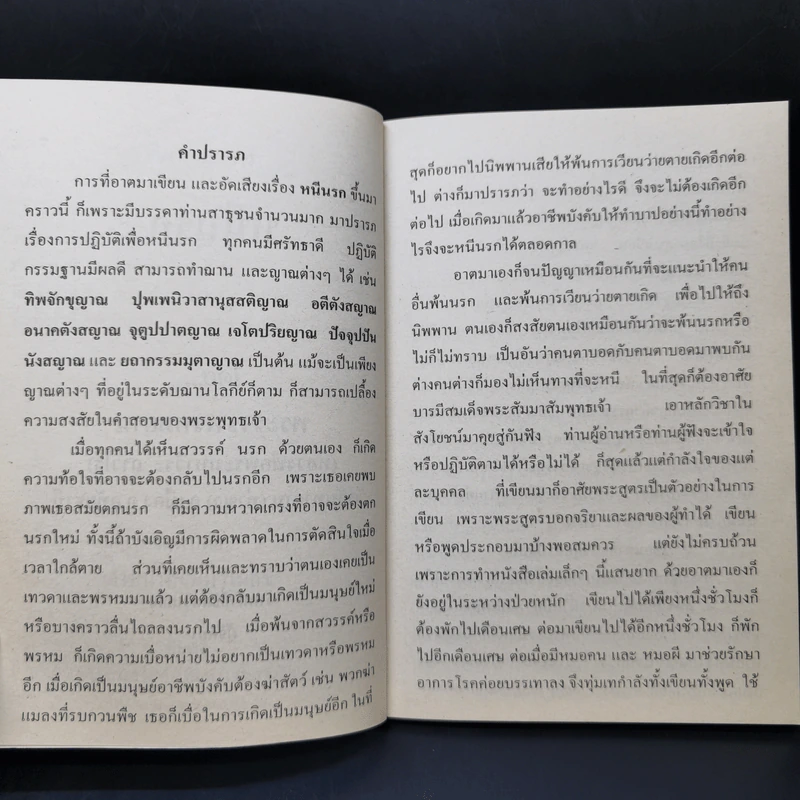 คำปรารภ
การที่อาตมาเขียน และอัดเสียงเรื่อง หนีนรก ขึ้นมา
คราวนี้ ก็เพราะมีบรรดาท่านสาธุชนจำนวนมาก มาปรารภ
เรื่องการปฏิบัติเพื่อหนีนรก ทุกคนมีศรัทธาดี ปฏิบัติ
กรรมฐานมีผลดี สามารถทำฌาน และญาณต่างๆ ได้ เช่น
ทิพจักขุญาณ ปุพเพนิวาสานุสสติญาณ อตีตังสญาณ
อนาคตังสญาณ จุตูปปาตญาณ เจโตปริยญาณ ปัจจุปปัน
นังสญาณ และ ยถากรรมมุตาญาณ เป็นต้น แม้จะเป็นเพียง
ญาณต่างๆ ที่อยู่ในระดับฌานโลกีย์ก็ตาม ก็สามารถเปลื้อง
ความสงสัยในคำสอนของพระพุทธเจ้า
เมื่อทุกคนได้เห็นสวรรค์ นรก ด้วยตนเอง ก็เกิด
ความท้อใจที่อาจจะต้องกลับไปนรกอีก เพราะเธอเคยพบ
ภาพเธอสมัยตกนรก ก็มีความหวาดเกรงที่อาจจะต้องตก
นรกใหม่ ทั้งนี้ถ้าบังเอิญมีการผิดพลาดในการตัดสินใจเมื่อ
เวลาใกล้ตาย ส่วนที่เคยเห็นและทราบว่าตนเองเคยเป็น
เทวดาและพรหมมาแล้ว แต่ต้องกลับมาเกิดเป็นมนุษย์ใหม่
หรือบางคราวลื่นไถลลงนรกไป เมื่อพ้นจากสวรรค์หรือ
พรหม ก็เกิดความเบื่อหน่ายไม่อยากเป็นเทวดาหรือพรหม
อีก เมื่อเกิดเป็นมนุษย์อาชีพบังคับต้องฆ่าสัตว์ เช่น พวกฆ่า
แมลงที่รบกวนพืช เธอก็เบื่อในการเกิดเป็นมนุษย์อีก ในที่
สุดก็อยากไปนิพพานเสียให้พ้นการเวียนว่ายตายเกิดอีกต่อ
ไป ต่างก็มาปรารภว่า จะทำอย่างไรดี จึงจะไม่ต้องเกิดอีก
ต่อไป เมื่อเกิดมาแล้วอาชีพบังคับให้ทำบาปอย่างนี้ทำอย่าง
ไรจึงจะหนีนรกได้ตลอดกาล
อาตมาเองก็จนปัญญาเหมือนกันที่จะแนะนำให้คน
อื่นพ้นนรก และพ้นการเวียนว่ายตายเกิด เพื่อไปให้ถึง
นิพพาน ตนเองก็สงสัยตนเองเหมือนกันว่าจะพ้นนรกหรือ
ไม่ก็ไม่ทราบ เป็นอันว่าคนตาบอดกับคนตาบอดมาพบกัน
ต่างคนต่างก็มองไม่เห็นทางที่จะหนี ในที่สุดก็ต้องอาศัย
บารมีสมเด็จพระสัมมาสัมพุทธเจ้า เอาหลักวิชาใน
สังโยชน์มาคุยสู่กันฟัง ท่านผู้อ่านหรือท่านผู้ฟังจะเข้าใจ
หรือปฏิบัติตามได้หรือไม่ได้ ก็สุดแล้วแต่กำลังใจของแต่
ละบุคคล ที่เขียนมาก็อาศัยพระสูตรเป็นตัวอย่างในการ
เขียน เพราะพระสูตรบอกจริยาและผลของผู้ทำได้ เขียน
หรือพูดประกอบมาบ้างพอสมควร แต่ยังไม่ครบถ้วน
เพราะการทำหนังสือเล่มเล็กๆ นี้แสนยาก ด้วยอาตมาเองก็
ยังอยู่ในระหว่างป่วยหนัก เขียนไปได้เพียงหนึ่งชั่วโมงก็
ต้องพักไปเดือนเศษ ต่อมาเขียนไปได้อีกหนึ่งชั่วโมง ก็พัก
ไปอีกเดือนเศษ ต่อเมื่อมีหมอคน และ หมอผี มาช่วยรักษา
อาการโรคค่อยบรรเทาลง จึงทุ่มเทกำลังทั้งเขียนทั้งพูด ใช้